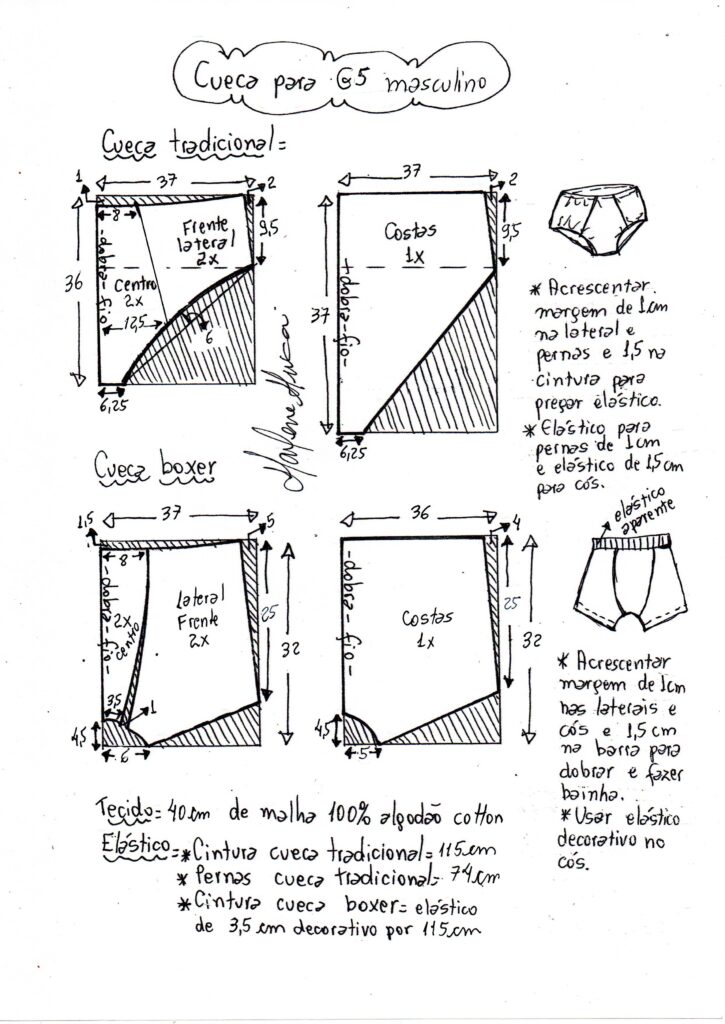 Cueca para G5 masculino
Cueca tradicional=
1
37
2
8
Frente
lateral
2x
9,5
36
-dobra-fio-
Centro
2x
12,5
6
6,25
37
2
Costas
1x
9,5
37
-dobra-fio-
6,25
* Acrescentar
margem de 1cm
na lateral e
pernas e 1,5 na
cintura para
pregar elástico.
* Elástico para
pernas de 1cm
e elástico de 1,5cm
para cós.
Cueca boxer
1,5
37
5
8
-dobra-fio-
2x
centro
Lateral
Frente
2x
25
32
3,5
1
4,5
6
36
4
-dobra-fio-
Costas
1x
25
32
4,5
5
elástico
aparente
* Acrescentar
margem de 1cm
nas laterais e
cós e 1,5 cm
na barra para
dobrar e fazer
bainha.
* Usar elástico
decorativo no
cós.
Tecido= 40cm de malha 100% algodão cotton
Elástico=* Cintura cueca tradicional= 115cm
* Pernas cueca tradicional= 74cm
* Cintura cueca boxer= elástico
de 3,5 cm decorativo por 115cm